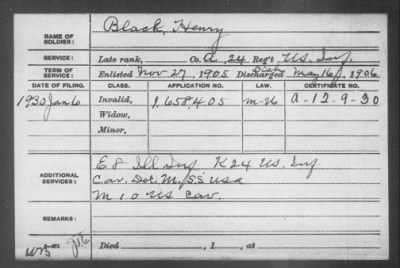 NAME OF SOLDIER: Black, Henry
SERVICE: Late rank, Co. A, 24 Reg't U.S. Inf.
TERM OF SERVICE: Enlisted Nov 27, 1905 Disch Discharged May 16, 1906
DATE OF FILING. CLASS. APPLICATION NO. LAW. CERTIFICATE NO.
1930 Jan 6 Invalid, 1,658,405 A-12-9-30
Widow,
Minor,
ADDITIONAL SERVICES: E 8 Ill Inf K 24 US. Inf
Cav. Det. M. SS USA
M 10 US Cav.
REMARKS:
Died , 1 , at